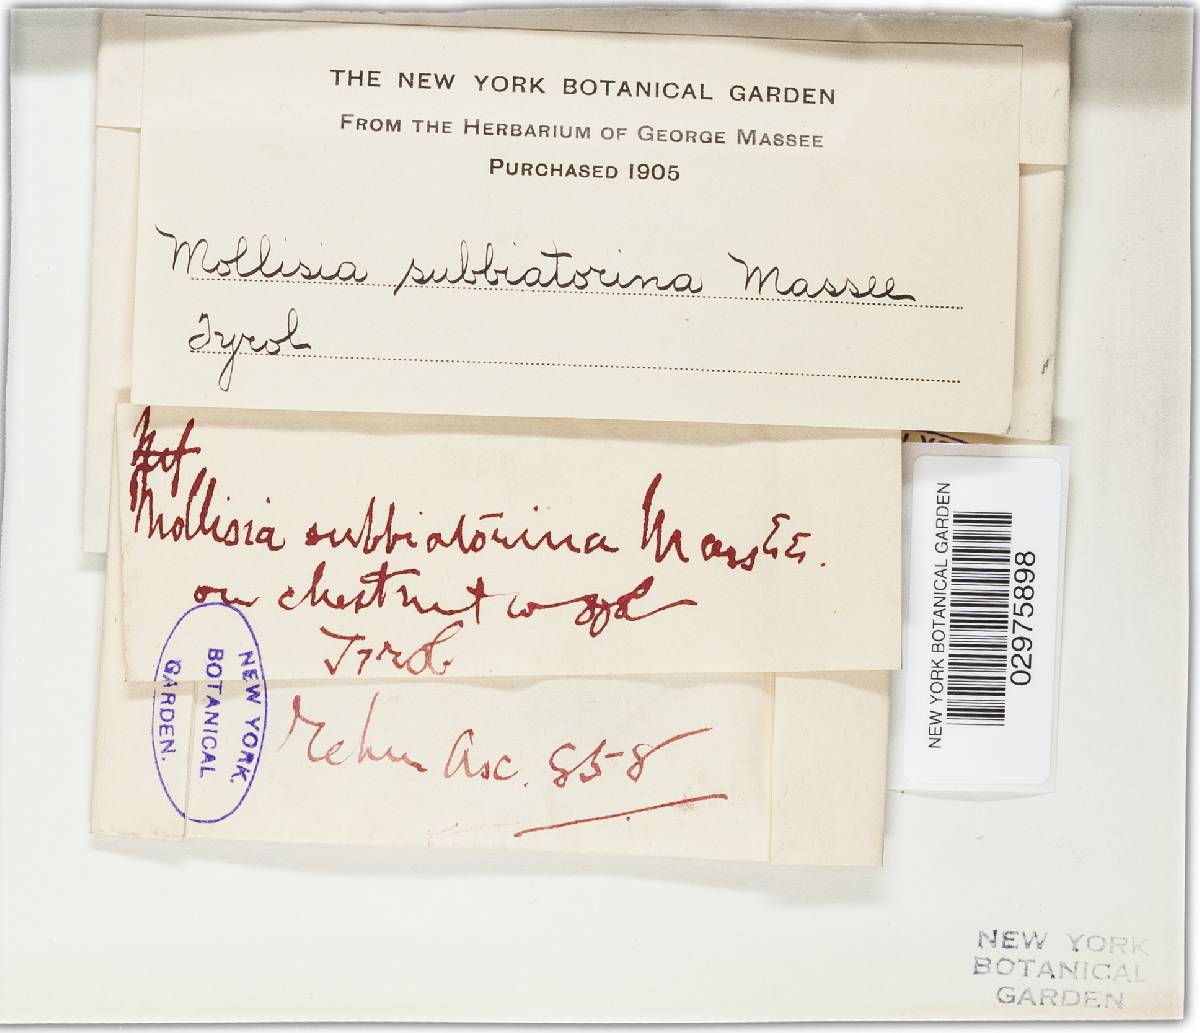 THE NEW YORK BOTANICAL GARDEN
FROM THE HERBARIUM OF GEORGE MASSEE
PURCHASED 1905
Mollisia subbiatorina Massee
Tyrol
Mollisia subbiatorina Massee.
on chestnut wood
Tyrol
Rehm Asc. 858
NEW YORK
BOTANICAL
GARDEN.
NEW YORK BOTANICAL GARDEN
02975898
NEW YORK
BOTANICAL
GARDEN